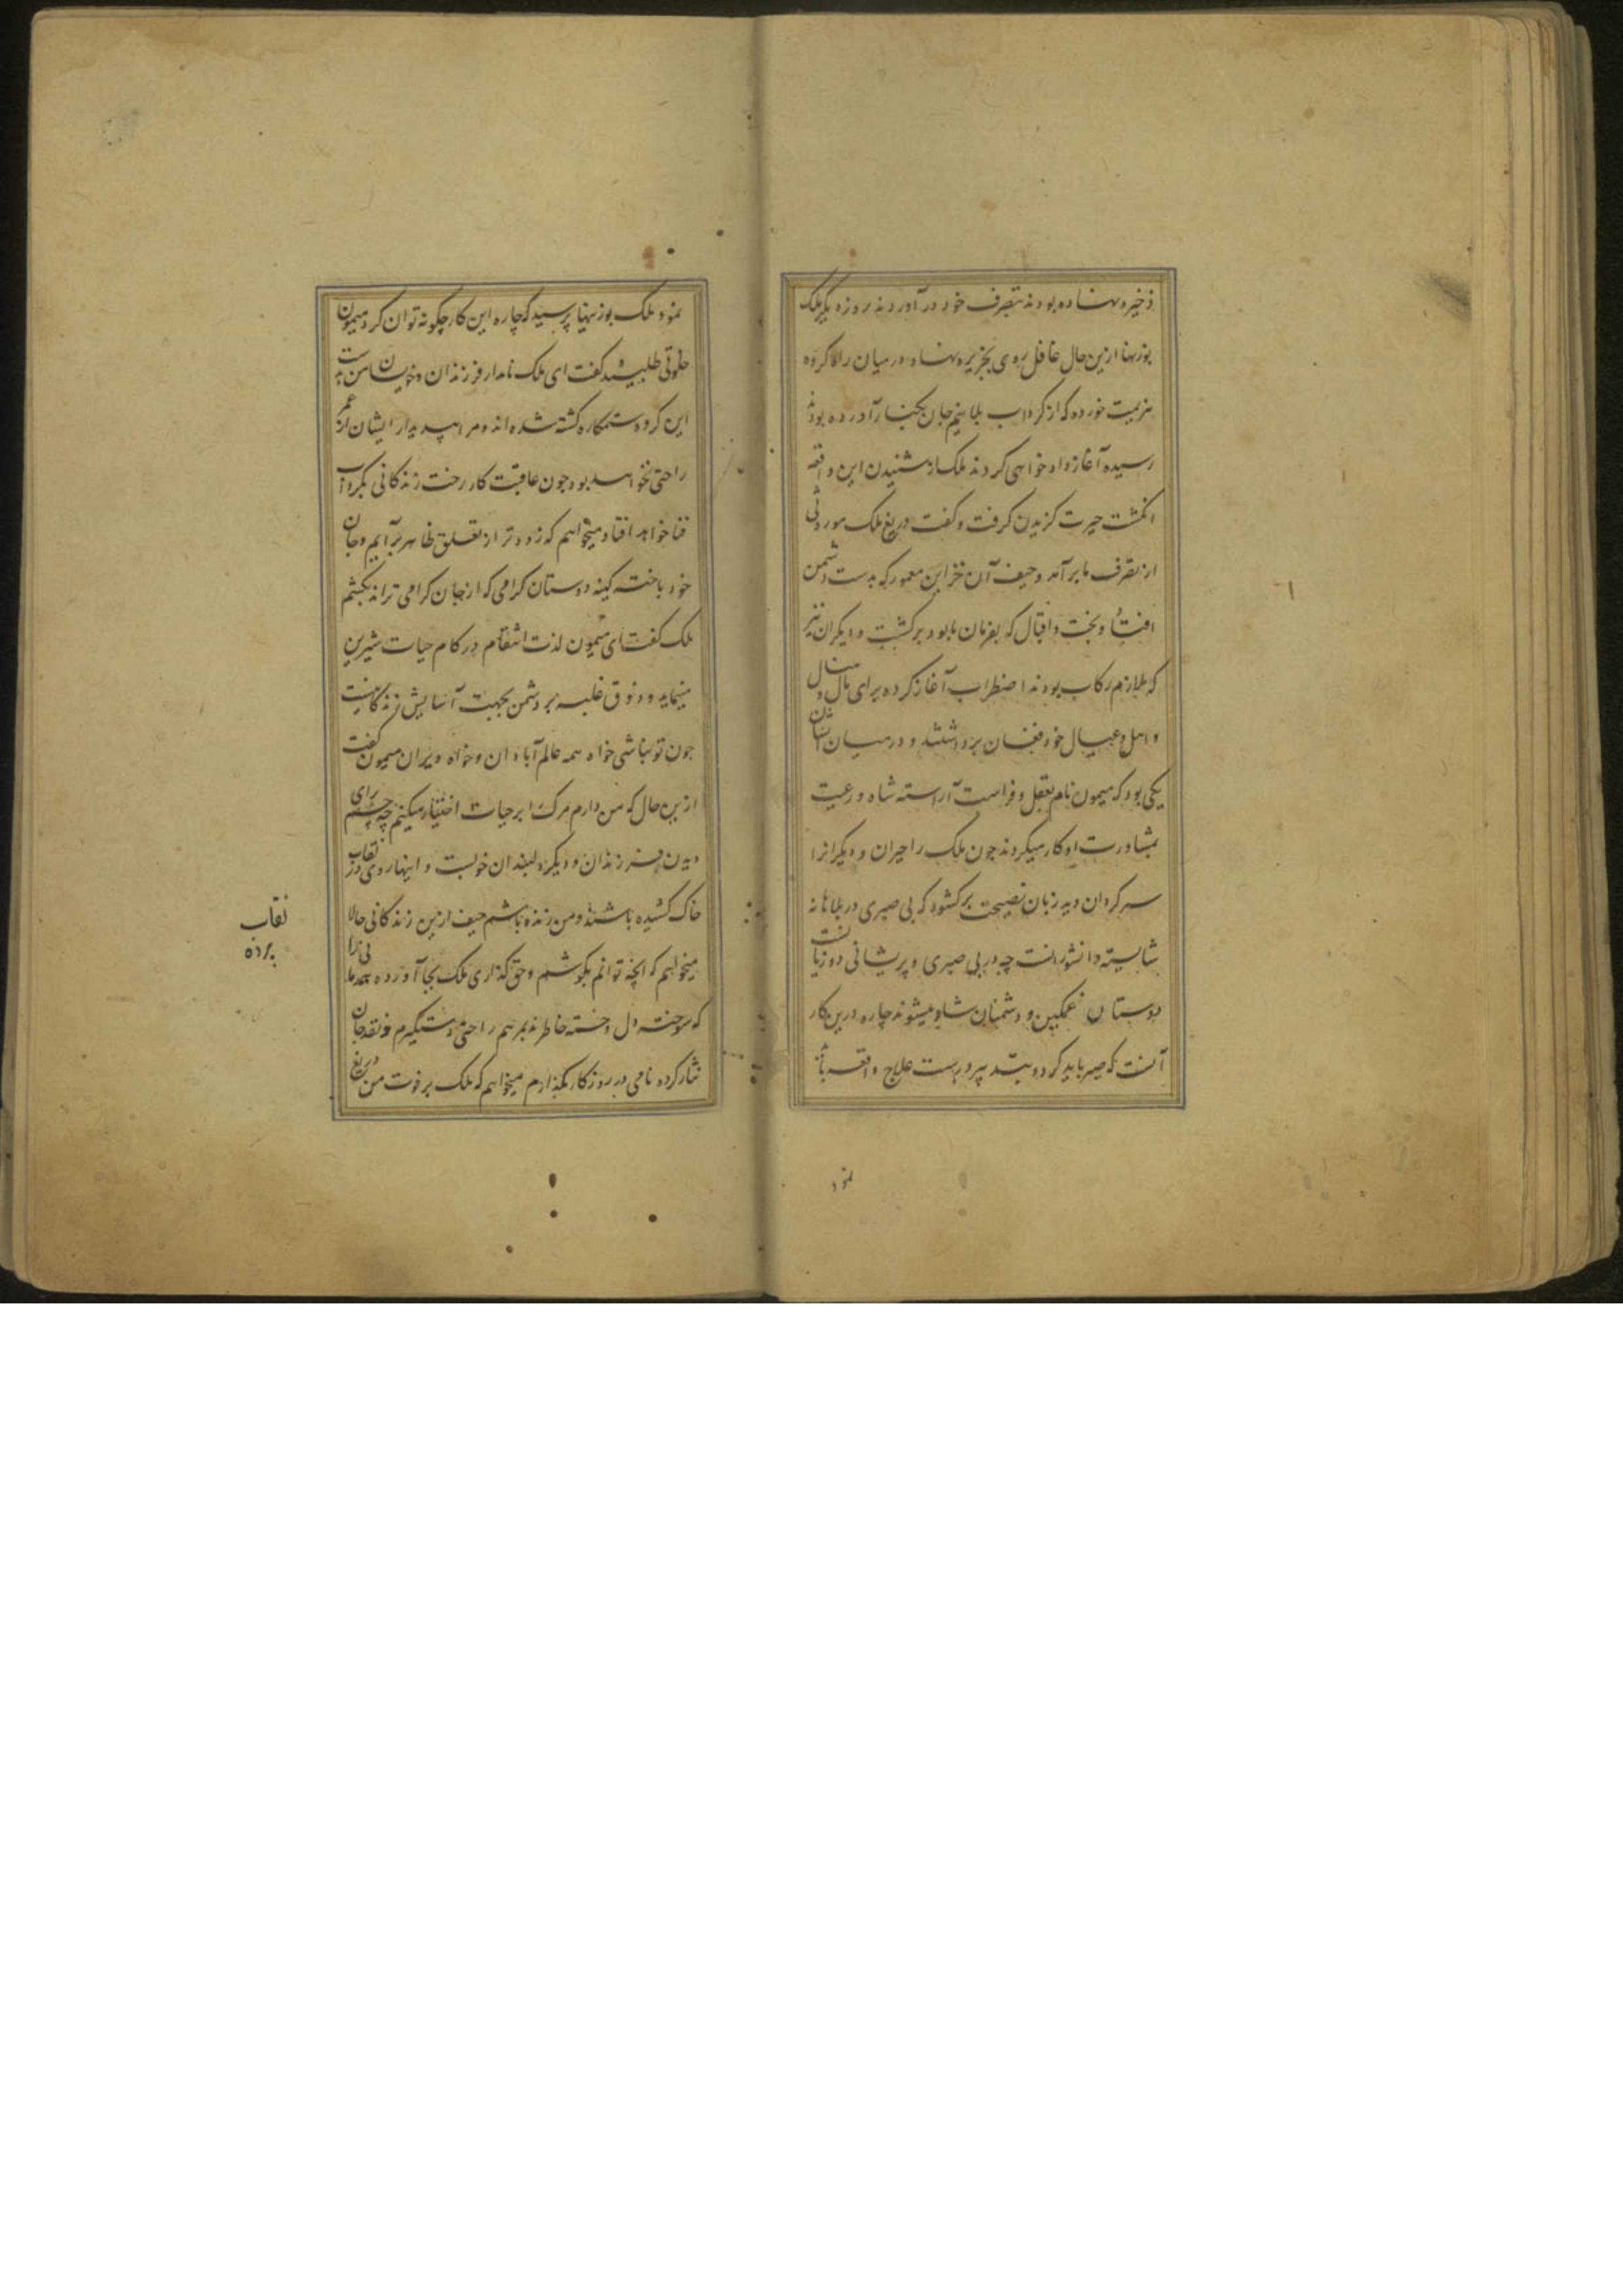 ذخیره نهاده بودند بتصرف خود در آوردند روز دیگر ملک
بوزنها ازین حال غافل روی بجزیره نهاد در میان راه کروه
هزیمت خورده که از کرداب بلا نیم جان بکنار آورده بودند
رسیده آغاز داد خواهی کردند ملک از شنیدن این واقعه
انکشت حیرت کزیدن کرفت و کفت دریغ ملک موروثی
از تصرف ما برآمد و حیف آن خزاین معمور که بدست دشمن
افتاد و بخت و اقبال که بفرمان ما بود برکشت و دیکران نیز
که ملازم رکاب بودند اضطراب آغاز کرده برای مال و منال
و اهل و عیال خود فغان برداشتند و درمیان ایشان
یکی بود که میمون نام بعقل و فراست آراسته شاه و رعیت
بمشاورت او کار میکردند چون ملک را حیران و دیکرانرا
سرکردان دید زبان نصیحت برکشود که بی صبری در بلاها نه
شایسته دانشورانست چه در بی صبری و پریشانی دو زیانست
دوستان غمکین و دشمنان شاد میشوند چاره درین کار
آنست که صبر باید کرد و بتدبیر درست علاج واقعه باید
نمود
نمود ملک بوزنها پرسید که چاره این کار چکونه توان کرد میمون
خلوتی طلبیده کفت ای ملک نامدار فرزندان و خویشان من بدست
این کروه ستمکاره کشته شده اند و مرا بیدیدار ایشان از عمر
راحتی نخواهد بود چون عاقبت کار رخت زندکانی بکرداب
فنا خواهد افتاد میخواهم که زودتر از تعلق ظاهر برآیم و جان
خود باخته کینه دوستان کرامی که از جان کرامی تراند بکشم
ملک کفت ای میمون لذت انتقام در کام حیات شیرین
مینماید و ذوق غلبه بر دشمن بجهت آسایش زندکانیست
چون تو نباشی خواه همه عالم آبادان و خواه ویران میمون کفت
ازین حال که من دارم مرک را بر حیات اختیار میکنم چه چشم برای
دیدن فرزندان و دیکر دلبندان خوبست و اینها روی در نقاب
خاک کشیده باشند و من زنده باشم حیف ازین زندکانی حالا
میخواهم که آنچه توانم بکوشم و حق کذاری ملک بجا آورده همدمانی را
که سوخته دل و خسته خاطرند بمرهم راحتی دستکیرم و نقد جان
نثار کرده نامی در روزکار بکذارم میخواهم که ملک بر فوت من دریغ
نقاب
پرده